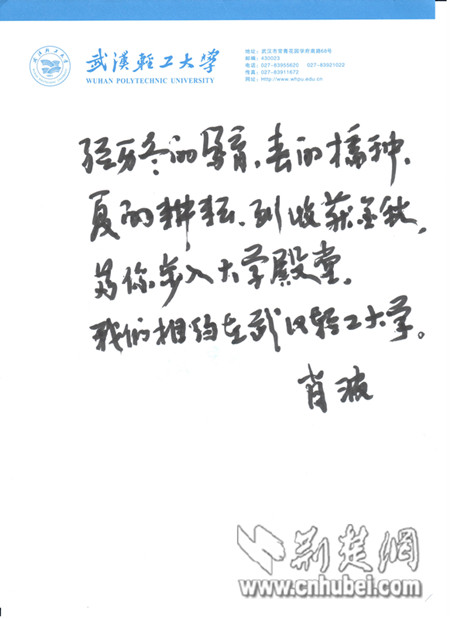 武漢輕工大學
WUHAN POLYTECHNIC UNIVERSITY
地址：武汉市常青花园学府南路68号
邮编：430023
电话：027-83955620 027-83921022
传真：027-83911672
网址：Http://www.whpu.edu.cn
经历冬的孕育、春的播种、
夏的耕耘、到收获金秋，
当你步入大学殿堂，
我们相约在武汉轻工大学。
肖波
荆楚網
www.cnhubei.com